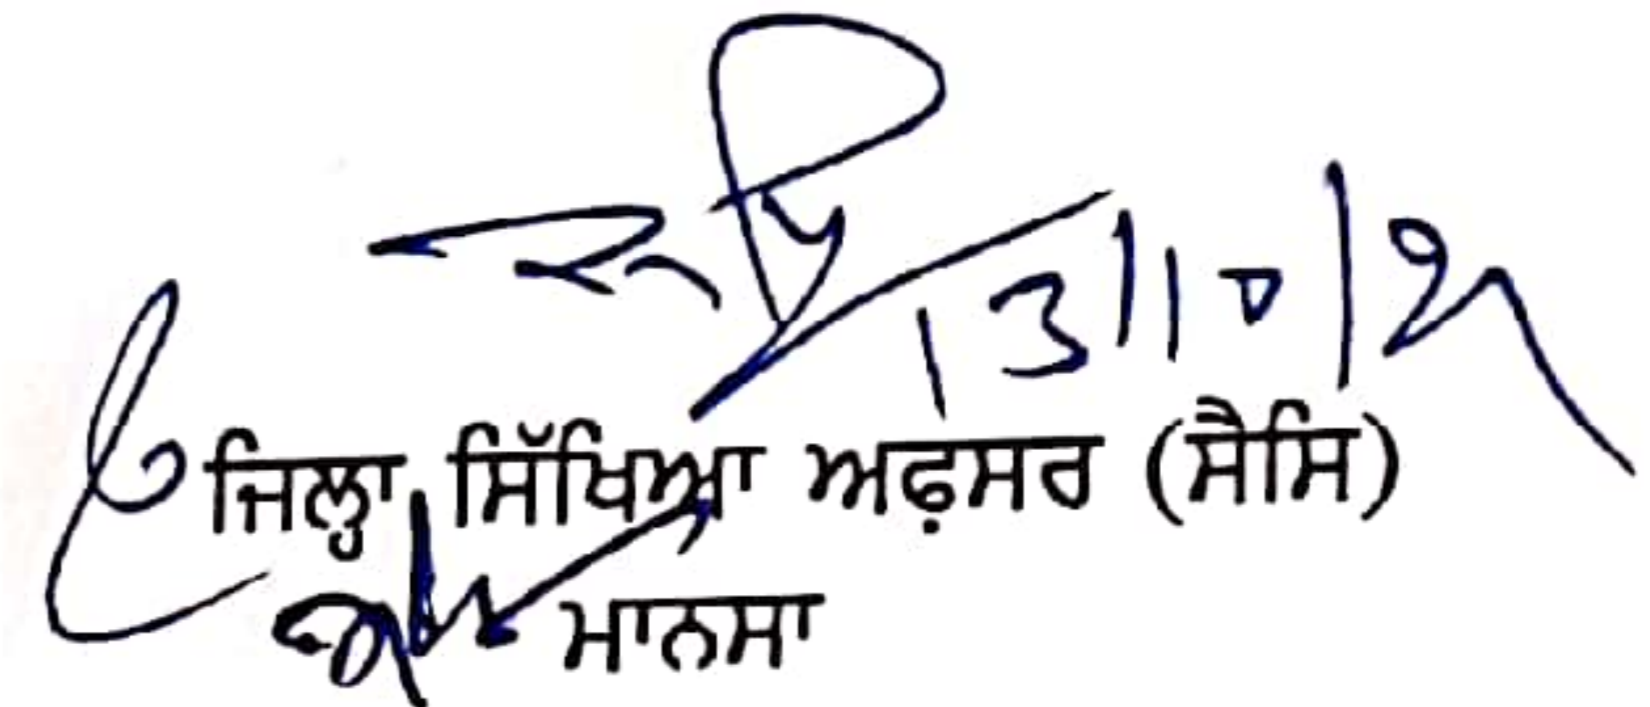 13/10/21
ਜਿਲ੍ਹਾ ਸਿੱਖਿਆ ਅਫ਼ਸਰ (ਸੈਸਿ)
ਮਾਨਸਾ